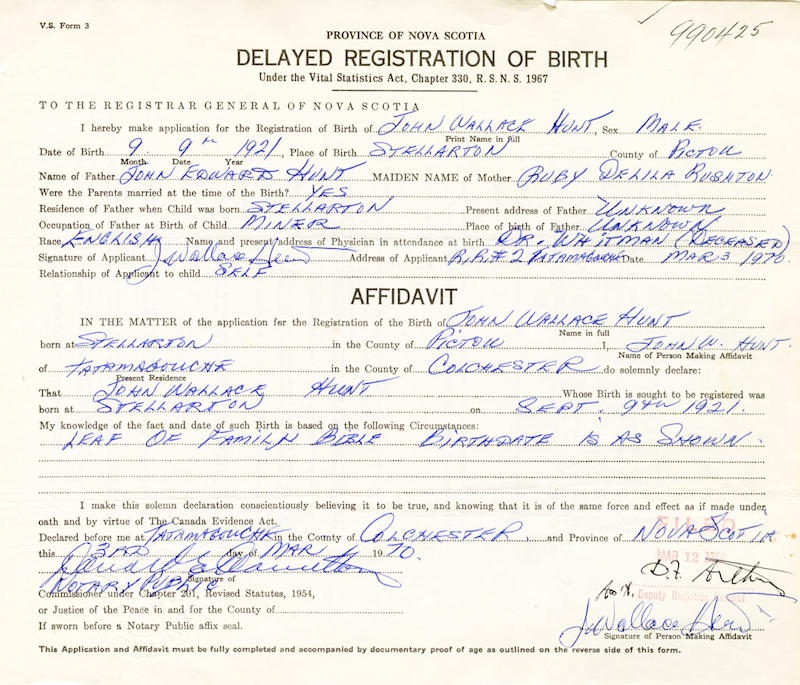 V.S. Form 3
990425
PROVINCE OF NOVA SCOTIA
DELAYED REGISTRATION OF BIRTH
Under the Vital Statistics Act, Chapter 330, R.S.N.S. 1967
TO THE REGISTRAR GENERAL OF NOVA SCOTIA
I hereby make application for the Registration of Birth of JOHN WALLACE HUNT, Sex MALE.
Print Name in full
Date of Birth 9. 9th 1921, Place of Birth STELLARTON County of PICTOU
Month Date Year
Name of Father JOHN EDWARD HUNT MAIDEN NAME of Mother RUBY DELILA RUSHTON.
Were the Parents married at the time of the Birth? YES
Residence of Father when Child was born STELLARTON Present address of Father UNKNOWN
Occupation of Father at Birth of Child MINER Place of birth of Father UNKNOWN
Race ENGLISH Name and present address of Physician in attendance at birth DR. WHITMAN (DECEASED)
Signature of Applicant J Wallace Hunt Address of Applicant R.R.#2 TATAMAGOUCHE Date MAR 3 1970.
Relationship of Applicant to child SELF
AFFIDAVIT
IN THE MATTER of the application for the Registration of the Birth of JOHN WALLACE HUNT
Name in full
born at STELLARTON in the County of PICTOU I, JOHN W. HUNT.
Name of Person Making Affidavit
of TATAMAGOUCHE in the County of COLCHESTER do solemnly declare:
Present Residence
That JOHN WALLACE HUNT Whose Birth is sought to be registered was
born at STELLARTON on SEPT. 9TH 1921.
My knowledge of the fact and date of such Birth is based on the following Circumstances:
LEAF OF FAMILY BIBLE BIRTHDATE IS AS SHOWN.
I make this solemn declaration conscientiously believing it to be true, and knowing that it is of the same force and effect as if made under
oath and by virtue of The Canada Evidence Act.
Declared before me at TATAMAGOUCHE in the County of COLCHESTER and Province of NOVA SCOTIA
FILED
this 3RD day of MAR 1970.
MAR 12 1970
Signature of
NOTARY PUBLIC
Commissioner under Chapter 201, Revised Statutes, 1954,
Deputy Registrar General
or Justice of the Peace in and for the County of
J Wallace Hunt
If sworn before a Notary Public affix seal.
Signature of Person Making Affidavit
This Application and Affidavit must be fully completed and accompanied by documentary proof of age as outlined on the reverse side of this form.